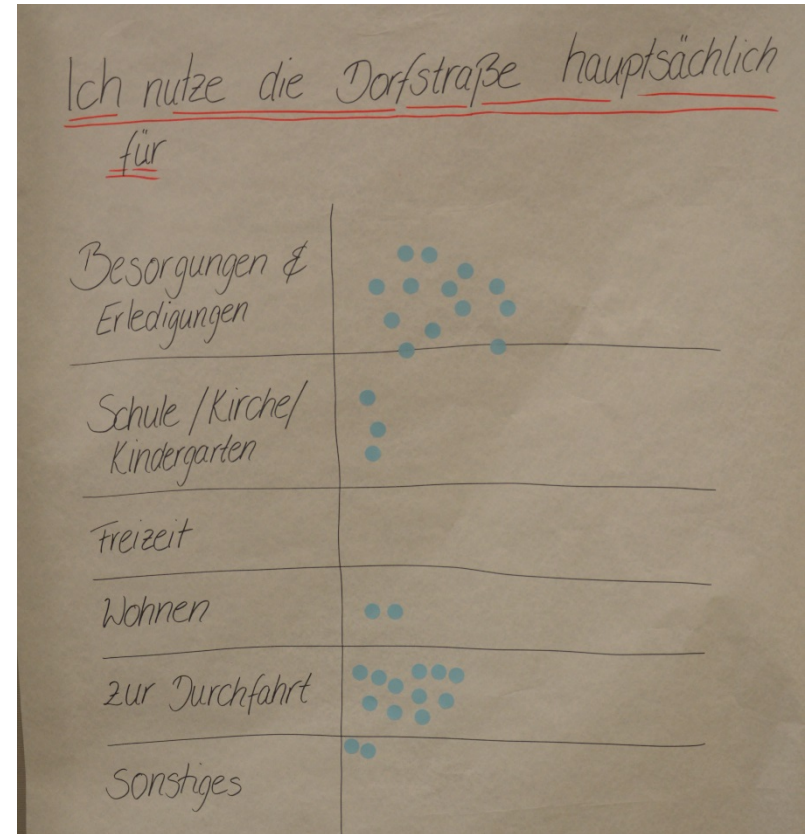 Ich nutze die Dorfstraße hauptsächlich
für
Besorgungen &
Erledigungen
Schule / Kirche /
Kindergarten
Freizeit
Wohnen
zur Durchfahrt
Sonstiges